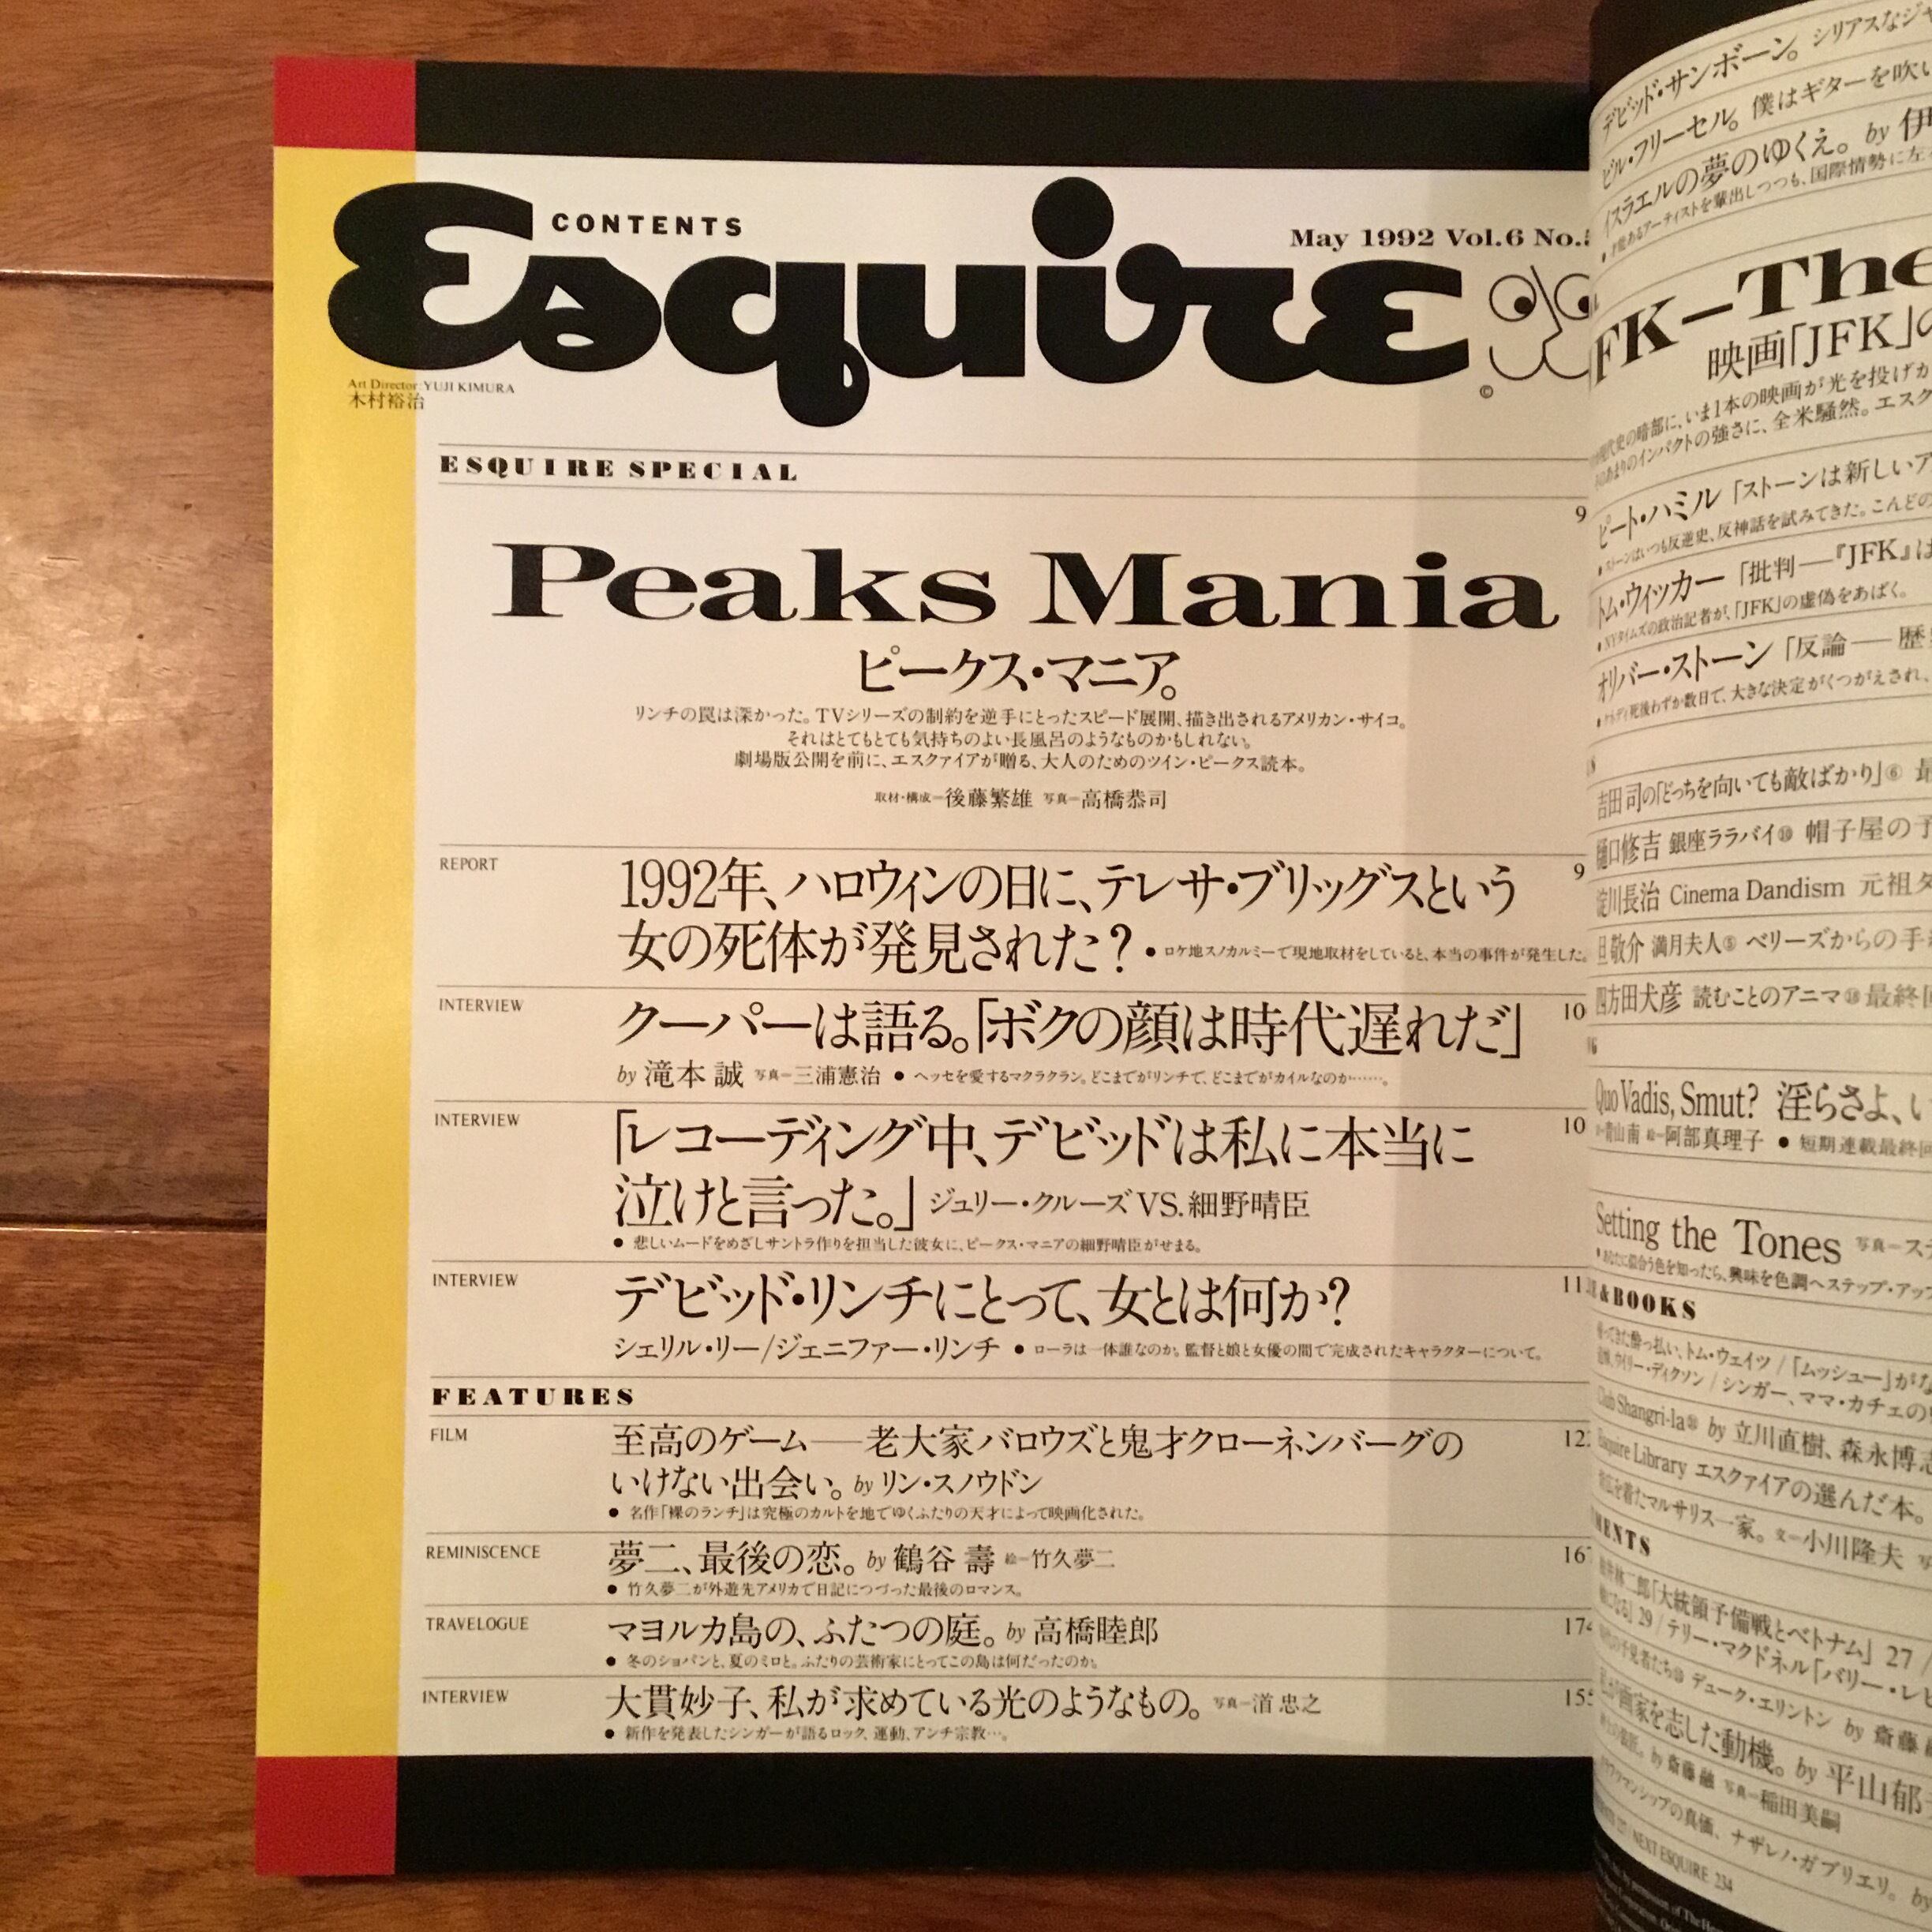 CONTENTS
Esquire
May 1992 Vol.6 No.
©
Art Director:YUJI KIMURA
木村裕治
ESQUIRE SPECIAL
9
Peaks Mania
ピークス・マニア。
リンチの罠は深かった。TVシリーズの制約を逆手にとったスピード展開、描き出されるアメリカン・サイコ。
それはとてもとても気持ちのよい長風呂のようなものかもしれない。
劇場版公開を前に、エスクァイアが贈る、大人のためのツイン・ピークス読本。
取材・構成=後藤繁雄 写真=高橋恭司
REPORT
1992年、ハロウィンの日に、テレサ・ブリッグスという
9
女の死体が発見された？ ● ロケ地スノカルミーで現地取材をしていると、本当の事件が発生した。
INTERVIEW
クーパーは語る。「ボクの顔は時代遅れだ」
10
by 滝本 誠 写真=三浦憲治 ● ヘッセを愛するマクラクラン。どこまでがリンチで、どこまでがカイルなのか……。
INTERVIEW
「レコーディング中、デビッドは私に本当に
10
泣けと言った。」ジュリー・クルーズ VS. 細野晴臣
● 悲しいムードをめざしサントラ作りを担当した彼女に、ピークス・マニアの細野晴臣がせまる。
INTERVIEW
デビッド・リンチにとって、女とは何か？
11
シェリル・リー/ジェニファー・リンチ ● ローラは一体誰なのか。監督と娘と女優の間で完成されたキャラクターについて。
FEATURES
FILM
至高のゲーム――老大家バロウズと鬼才クローネンバーグの
12
いけない出会い。by リン・スノウドン
● 名作「裸のランチ」は究極のカルトを地でゆくふたりの天才によって映画化された。
REMINISCENCE
夢二、最後の恋。by 鶴谷 壽 絵=竹久夢二
167
● 竹久夢二が外遊先アメリカで日記につづった最後のロマンス。
TRAVELOGUE
マヨルカ島の、ふたつの庭。by 高橋睦郎
174
● 冬のショパンと、夏のミロと。ふたりの芸術家にとってこの島は何だったのか。
INTERVIEW
大貫妙子、私が求めている光のようなもの。写真= 忠之
155
● 新作を発表したシンガーが語るロック、運動、アンチ宗教…。
デビッド・サンボーン。シリアスなジャ
ビル・フリーセル。僕はギターを吹い
イスラエルの夢のゆくえ。by 伊
アーティストを輩出しつつも、国際情勢に左
FK－The
映画「JFK」の
現代史の暗部に、いま1本の映画が光を投げか
あまりのインパクトの強さに、全米騒然。エスク
ピート・ハミル「ストーンは新しいア
● ストーンはいつも反逆史、反神話を試みてきた。こんどの
トム・ウィッカー「批判――『JFK』は
● NYタイムズの政治記者が、「JFK」の虚偽をあばく。
オリバー・ストーン「反論――歴
死後わずか数日で、大きな決定がくつがえされ、
吉田司の「どっちを向いても敵ばかり」⑥ 最
樋口修吉 銀座ララバイ⑩ 帽子屋の
淀川長治 Cinema Dandism 元祖
旦敬介 満月夫人⑤ ベリーズからの手
四方田犬彦 読むことのアニマ⑱ 最終回
Quo Vadis, Smut? 淫らさよ、い
青山南 絵=阿部真理子 ● 短期連載最終回
Setting the Tones 写真=ス
● あなたに似合う色を知ったら、興味を色調へステップ・アップ
&BOOKS
酔っ払い、トム・ウェイツ / 「ムッシュー」が
ウィリー・ディクソン / シンガー、ママ・カチェの
Club Shangri-la by 立川直樹、森永博志
Esquire Library エスクァイアの選んだ本。
を着たマルサリス一家。文=小川隆夫 写
MENTS
「大統領予備戦とベトナム」27 /
29 / テリー・マクドネル「バリー・レビ
デューク・エリントン by 斎藤
画家を志した動機。by 平山郁
by 斎藤融 写真=稲田美嗣
クラフツマンシップの真価、ナザレノ・ガブリエリ。by
NEXT ESQUIRE 234